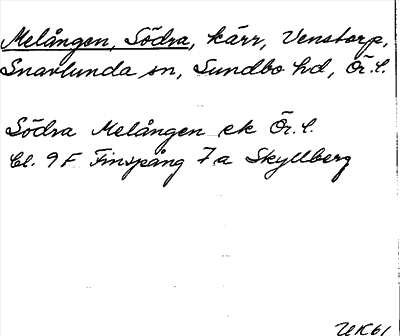 Melången, Södra, kärr, Venstorp,
Snavlunda sn, Sundbo hd, Ör. l.
Södra Melången ek Ör. l.
bl. 9 F Finspång 7 a Skyllberg
UK61